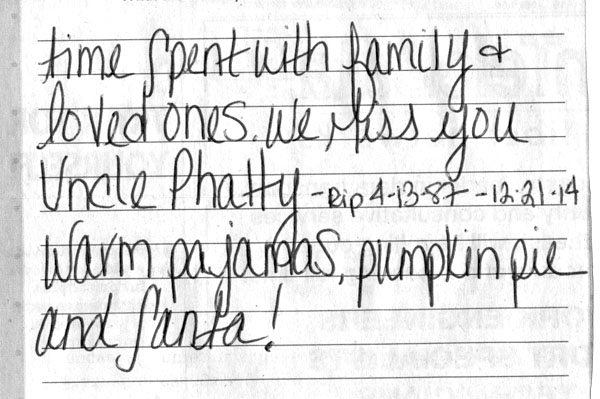 time spent with family &
loved ones. We Miss you
Uncle Phatty -Rip 4-13-87 - 12-21-14
Warm pajamas, pumpkin pie
and Santa!